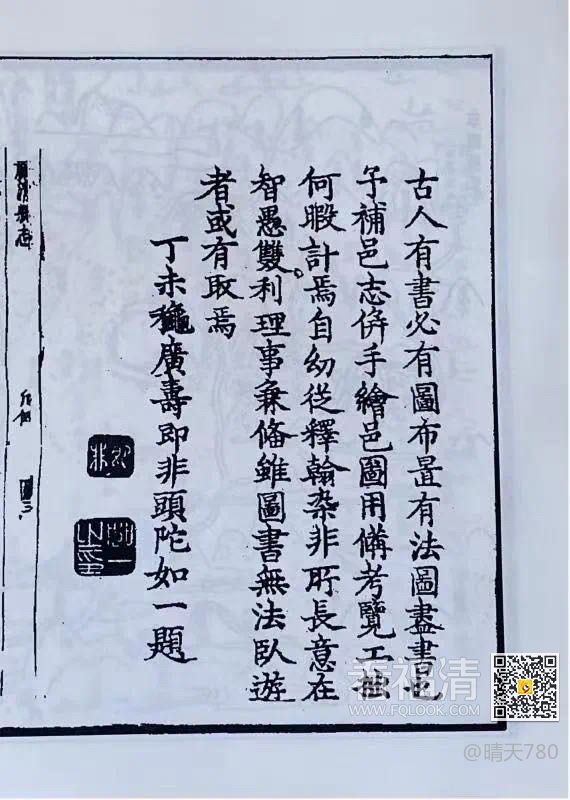 古人有書必有圖布置有法圖盡書也
予補邑志併手繪邑圖用備考覽工拙
何暇計焉自幼從釋翰染非所長意在
智愚雙利理事兼俻雖圖書無法臥遊
者或有取焉
丁未龝廣壽即非頭陀如一題
福清縣志
圖三
福清
WWW.FQLOOK.COM
@晴天780